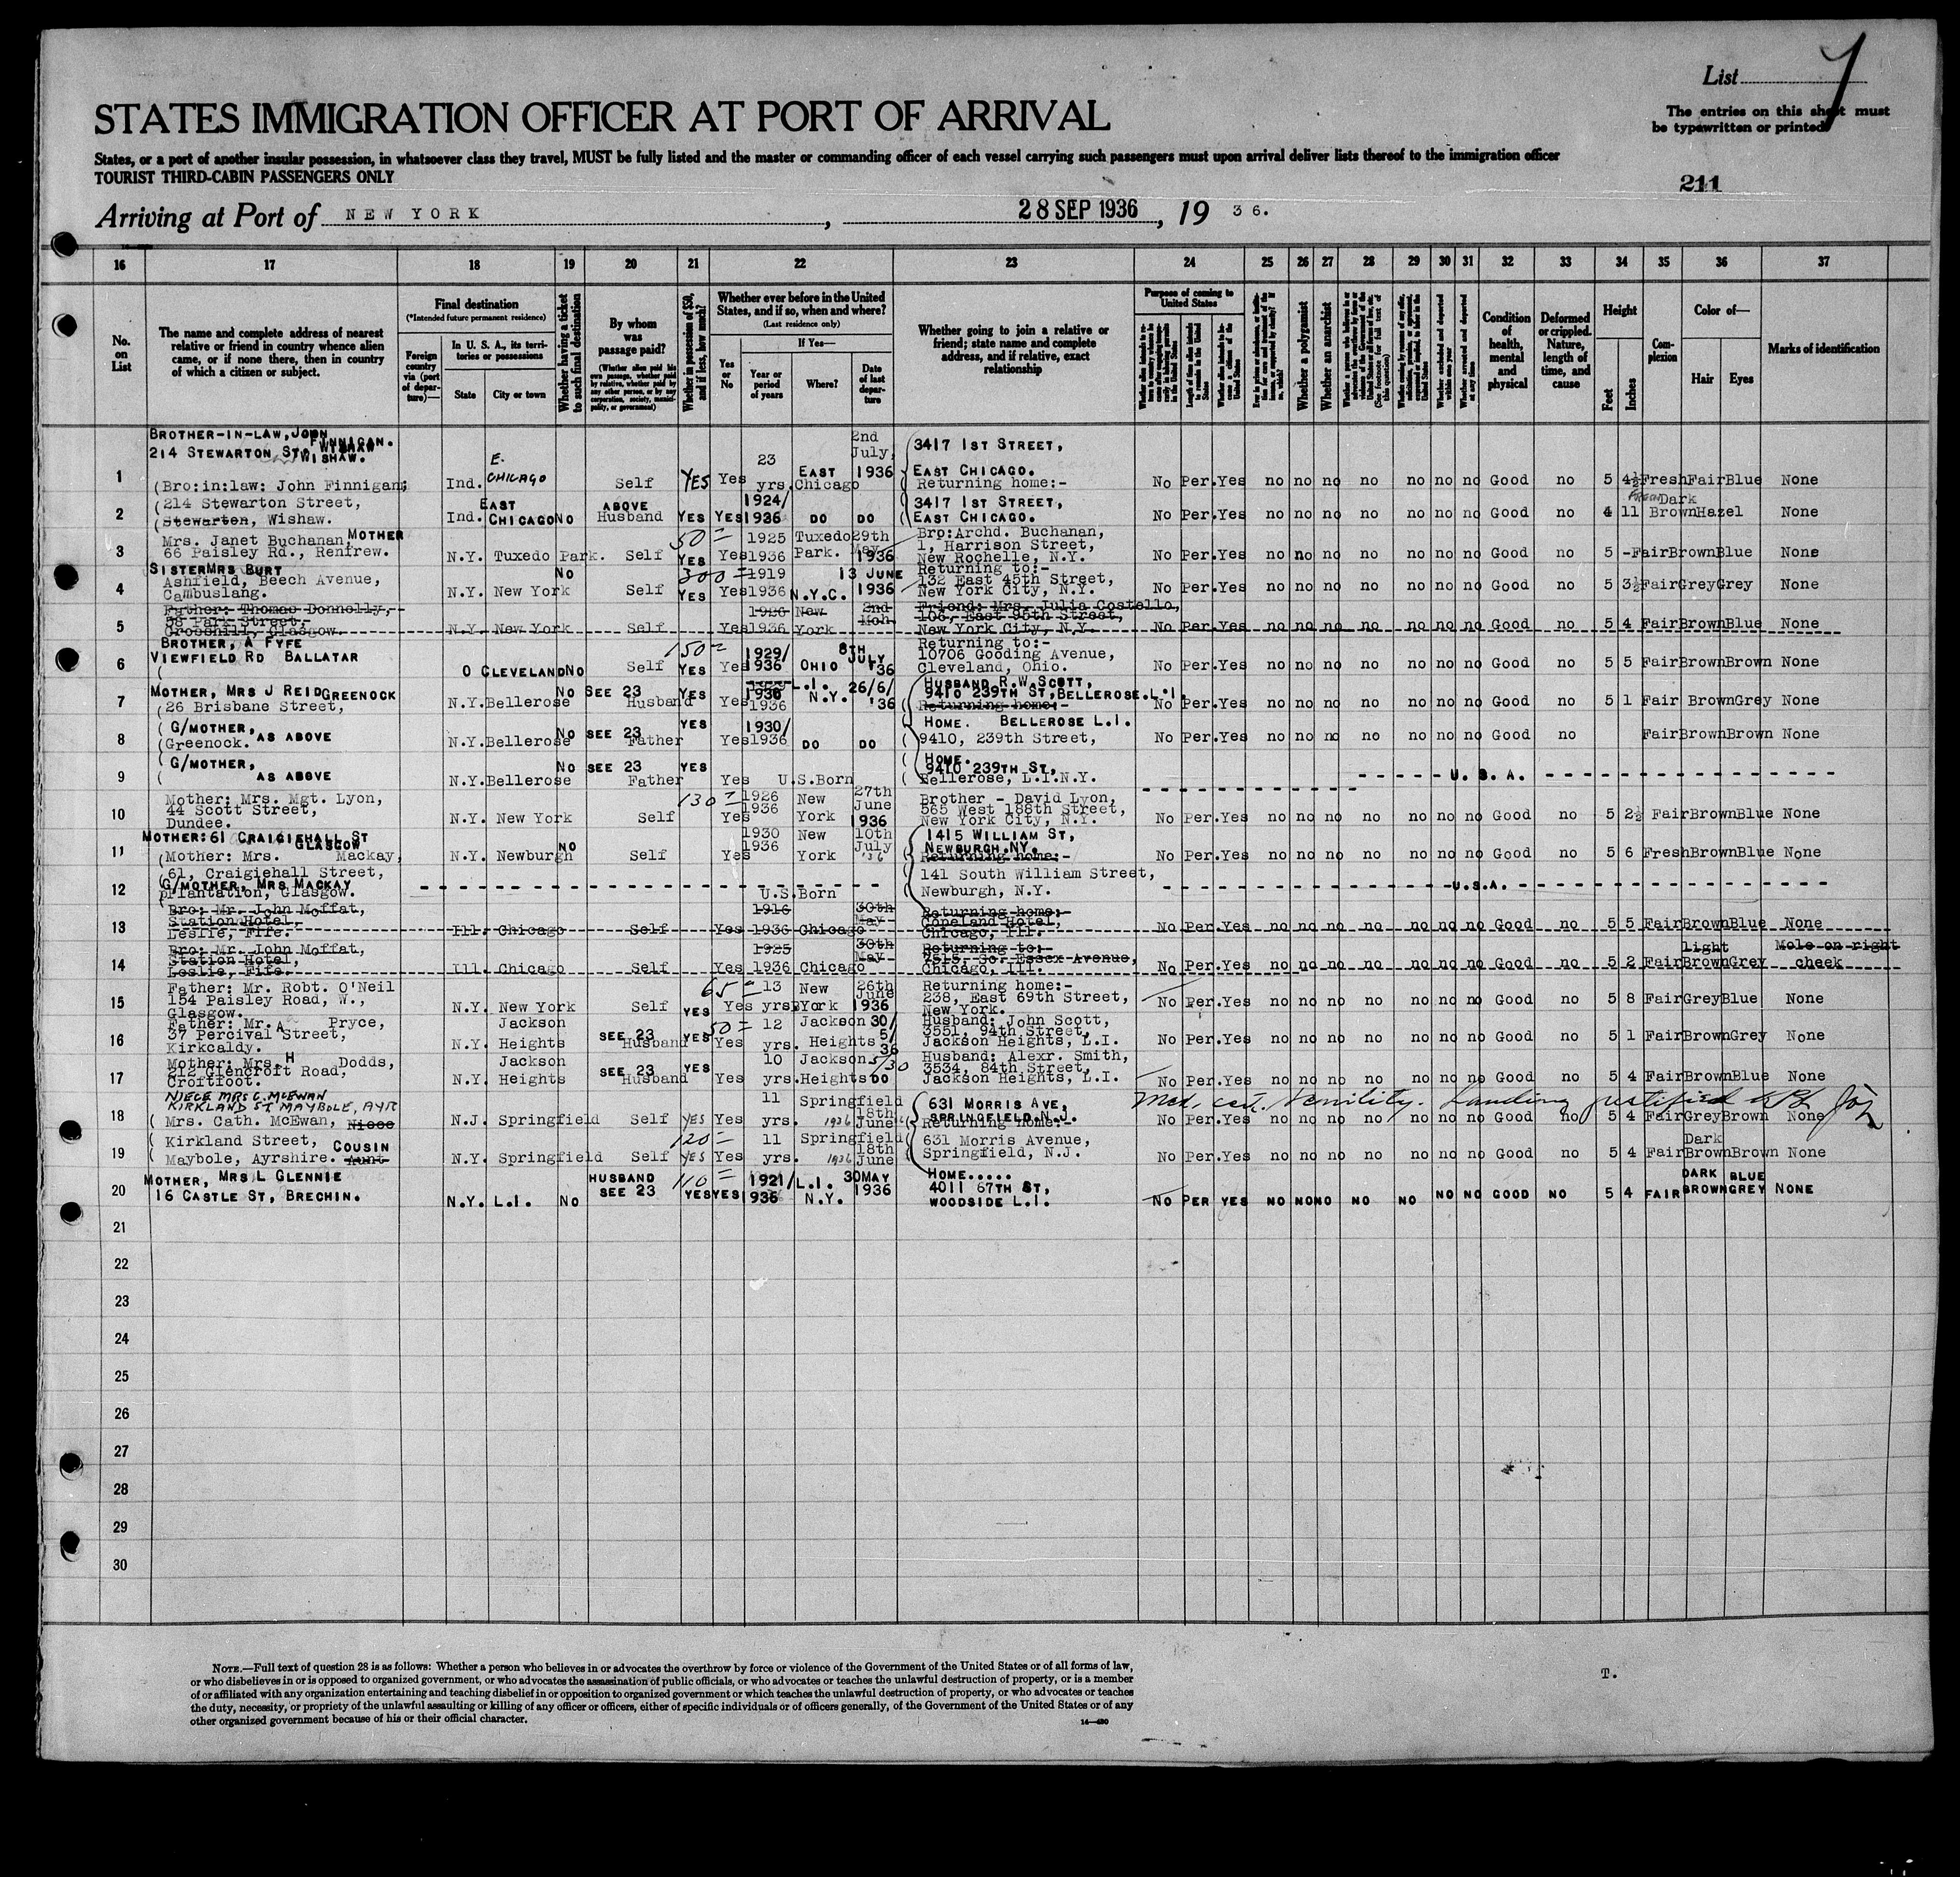 List 7
The entries on this sheet must
be typewritten or printed.
STATES IMMIGRATION OFFICER AT PORT OF ARRIVAL
States, or a port of another insular possession, in whatsoever class they travel, MUST be fully listed and the master or commanding officer of each vessel carrying such passengers must upon arrival deliver lists thereof to the immigration officer
TOURIST THIRD-CABIN PASSENGERS ONLY
211
Arriving at Port of NEW YORK, 28 SEP 1936, 19 36.
16 17 18 19 20 21 22 23 24 25 26 27 28 29 30 31 32 33 34 35 36 37
No. on List
The name and complete address of nearest relative or friend in country whence alien came, or if none there, then in country of which a citizen or subject.
Final destination
(*Intended future permanent residence)
Foreign country via (port of departure)—
In U. S. A., its territories or possessions
State
City or town
Whether having a ticket to such final destination
By whom was passage paid?
(Whether alien paid his own passage, whether paid by relative, whether paid by any other person, or by any corporation, society, municipality, or government)
Whether in possession of $50, and if less, how much?
Whether ever before in the United States, and if so, when and where?
(Last residence only)
Yes or No
If Yes—
Year or period of years
Where?
Date of last departure
Whether going to join a relative or friend; state name and complete address, and if relative, exact relationship
Purpose of coming to United States
Whether a polygamist
Whether an anarchist
Condition of health, mental and physical
Deformed or crippled. Nature, length of time, and cause
Height
Feet
Inches
Complexion
Color of—
Hair
Eyes
Marks of identification
1 BROTHER-IN-LAW, JOHN FINNIGAN.
214 STEWARTON ST. WISHAW
(Bro:in:law: John Finnigan; Ind. E. CHICAGO Self YES Yes 23 yrs. EAST Chicago 2nd July, 1936 3417 1ST STREET, EAST CHICAGO. Returning home:- No Per. Yes no no no no no no no Good no 5 4½ Fresh Fair Blue None
2 (214 Stewarton Street,
(Stewarton, Wishaw. Ind. EAST CHICAGO NO ABOVE Husband YES YES 1924/1936 DO DO 3417 1ST STREET, EAST CHICAGO. No Per. Yes no no no no no no no Good no 4 11 Brown Dark Hazel None
3 Mrs. Janet Buchanan, MOTHER
66 Paisley Rd., Renfrew. N.Y. Tuxedo Park. Self 50= YES Yes 1925 1936 Tuxedo Park. 29th May 1936 Bro:Archd. Buchanan, 1, Harrison Street, New Rochelle, N.Y. No Per. Yes no no no no no no no Good no 5 - Fair Brown Blue None
4 SISTER MRS BURT
Ashfield, Beech Avenue,
Cambuslang. N.Y. New York NO Self 300= YES Yes 1919 1936 N.Y.C. 13 JUNE 1936 Returning to:- 132 East 45th Street, New York City, N.Y. No Per. Yes no no no no no no no Good no 5 3½ Fair Grey Grey None
5 Father: Thomas Donnelly,
58 Park Street,
Crosshill, Glasgow. N.Y. New York Self Yes 1936 New York 2nd Mch. Friend: Mrs. Julia Costello, 106, East 95th Street, New York City, N.Y. No Per. Yes no no no no no no no Good no 5 4 Fair Brown Blue None
6 BROTHER, A FYFE
VIEWFIELD RD BALLATAR O CLEVELAND NO Self 150= YES Yes 1929/1936 OHIO 8TH JULY '36 Returning to:- 10706 Gooding Avenue, Cleveland, Ohio. No Per. Yes no no no no no no no Good no 5 5 Fair Brown Brown None
7 MOTHER, MRS J REID GREENOCK
(26 Brisbane Street, N.Y. Bellerose NO SEE 23 Husband YES Yes 1930 1936 L.I. N.Y. 26/6/'36 HUSBAND R.W. SCOTT, 9410 239TH ST, BELLEROSE.L.I. Returning home:- No Per. Yes no no no no no no no Good no 5 1 Fair Brown Grey None
8 (G/MOTHER, AS ABOVE
(Greenock. N.Y. Bellerose NO SEE 23 Father YES Yes 1930/1936 DO DO HOME. BELLEROSE L.I. 9410, 239th Street, No Per. Yes no no no no no no no Good no Fair Brown Brown None
9 (G/MOTHER, AS ABOVE N.Y. Bellerose NO SEE 23 Father YES Yes U.S.Born HOME. 9410 239TH ST, Bellerose, L.I.N.Y. U. S. A.
10 Mother: Mrs. Mgt. Lyon,
44 Scott Street,
Dundee. N.Y. New York Self 130= Yes 1926 1936 New York 27th June 1936 Brother - David Lyon, 565 West 188th Street, New York City, N.Y. No Per. Yes no no no no no no no Good no 5 2½ Fair Brown Blue None
11 MOTHER: 61 CRAIGIEHALL ST GLASGOW
(Mother: Mrs. Mackay, N.Y. Newburgh NO Self Yes 1930 1936 New York 10th July '36 1415 WILLIAM ST, NEWBURGH.NY. Returning home:- No Per. Yes no no no no no no no Good no 5 6 Fresh Brown Blue None
12 (61, Craigiehall Street,
G/MOTHER, MRS MACKAY
Plantation, Glasgow. U.S.Born 141 South William Street, Newburgh, N.Y. U.S.A.
13 Bro: Mr. John Moffat,
Station Hotel,
Leslie, Fife. Ill. Chicago Self Yes 1916 1936 Chicago 30th May Returning home:- Copeland Hotel, Chicago, Ill. No Per. Yes no no no no no no no Good no 5 5 Fair Brown Blue None
14 Bro: Mr. John Moffat,
Station Hotel,
Leslie, Fife. Ill. Chicago Self Yes 1925 1936 Chicago 30th May Returning to:- 7515, So. Essex Avenue, Chicago, Ill. No Per. Yes no no no no no no no Good no 5 2 Fair light Brown Grey Mole on right cheek
15 Father: Mr. Robt. O'Neil
154 Paisley Road, W.,
Glasgow. N.Y. New York Self 65= YES Yes 13 yrs. New York 26th June 1936 Returning home:- 238, East 69th Street, New York. No Per. Yes no no no no no no no Good no 5 8 Fair Grey Blue None
16 Father: Mr. A Pryce,
37 Percival Street,
Kirkcaldy. N.Y. Jackson Heights SEE 23 Husband 50= YES Yes 12 yrs. Jackson Heights 30/5/36 Husband: John Scott, 3551, 94th Street, Jackson Heights, L.I. No Per. Yes no no no no no no no Good no 5 1 Fair Brown Grey None
17 Mother: Mrs. H Dodds,
212 Glencroft Road,
Croftfoot. N.Y. Jackson Heights SEE 23 Husband YES Yes 10 yrs. Jackson Heights DO Husband: Alexr. Smith, 3534, 84th Street, Jackson Heights, L.I. No Per. Yes no no no no no no no Good no 5 4 Fair Brown Blue None
18 NIECE MRS C. MCEWAN
KIRKLAND ST MAYBOLE, AYR
(Mrs. Cath. McEwan, Niece N.J. Springfield Self YES Yes 11 yrs. Springfield 1936 18th June 631 MORRIS AVE, SPRINGFIELD.N.J. Returning home:- No Per. Yes no no no no no no no Good no 5 4 Fair Grey Brown None
Med. cert. Senility. Landing justified
19 (Kirkland Street, COUSIN
(Maybole, Ayrshire. Aunt N.Y. Springfield Self 120= YES Yes 11 yrs. Springfield 1936 18th June 631 Morris Avenue, Springfield, N.J. No Per. Yes no no no no no no no Good no 5 4 Fair Dark Brown Brown None
20 MOTHER, MRS L GLENNIE
16 CASTLE ST, BRECHIN. N.Y. L.I. NO HUSBAND SEE 23 110= YES YES 1921/1936 L.I. N.Y. 30MAY 1936 HOME..... 4011 67TH ST, WOODSIDE L.I. NO PER YES NO NO NO NO NO NO NO GOOD NO 5 4 FAIR DARK BROWN BLUE GREY NONE
21
22
23
24
25
26
27
28
29
30
NOTE.—Full text of question 28 is as follows: Whether a person who believes in or advocates the overthrow by force or violence of the Government of the United States or of all forms of law,
or who disbelieves in or is opposed to organized government, or who advocates the assassination of public officials, or who advocates or teaches the unlawful destruction of property, or is a member
of or affiliated with any organization entertaining and teaching disbelief in or opposition to organized government or which teaches the unlawful destruction of property, or who advocates or teaches
the duty, necessity, or propriety of the unlawful assaulting or killing of any officer or officers, either of specific individuals or of officers generally, of the Government of the United States or of any
other organized government because of his or their official character.
T.